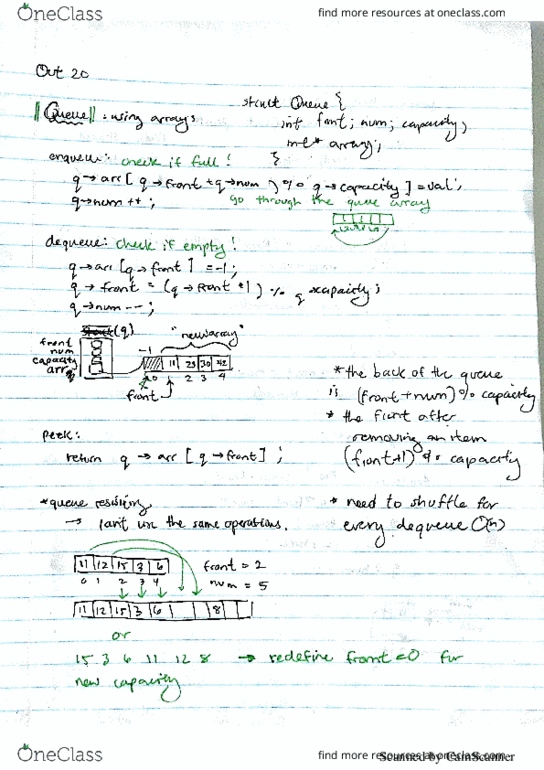 OneClass
find more resources at oneclass.com
Oct 20
Queue : using arrays
struct Queue {
int front, num, capacity;
int* array;
}
enqueue: check if full!
q→arr[ q→front + q→num ) % q→capacity ] = val;
q→num ++ ;
go through the queue array
dequeue: check if empty!
q→arr [q→front ] = -1;
q→front = (q→front +1 ) % q→capacity;
q→num -- ;
(q)
"new array"
front
num
capacity
arr
-1
11 25 30 42
0 1 2 3 4
front
* the back of the queue
is (front + num) % capacity
* the first after
removing an item
(front+1) % capacity
peek:
return q → arr [ q → front ] ;
* queue resizing
→ can't use the same operations.
* need to shuffle for
every dequeue O(n)
11 12 15 3 6
0 1 2 3 4
front = 2
num = 5
11 12 15 3 6 8
or
15 3 6 11 12 8 → redefine front = 0 for
new capacity
OneClass
find more resources at oneclass.com
Scanned by CamScanner